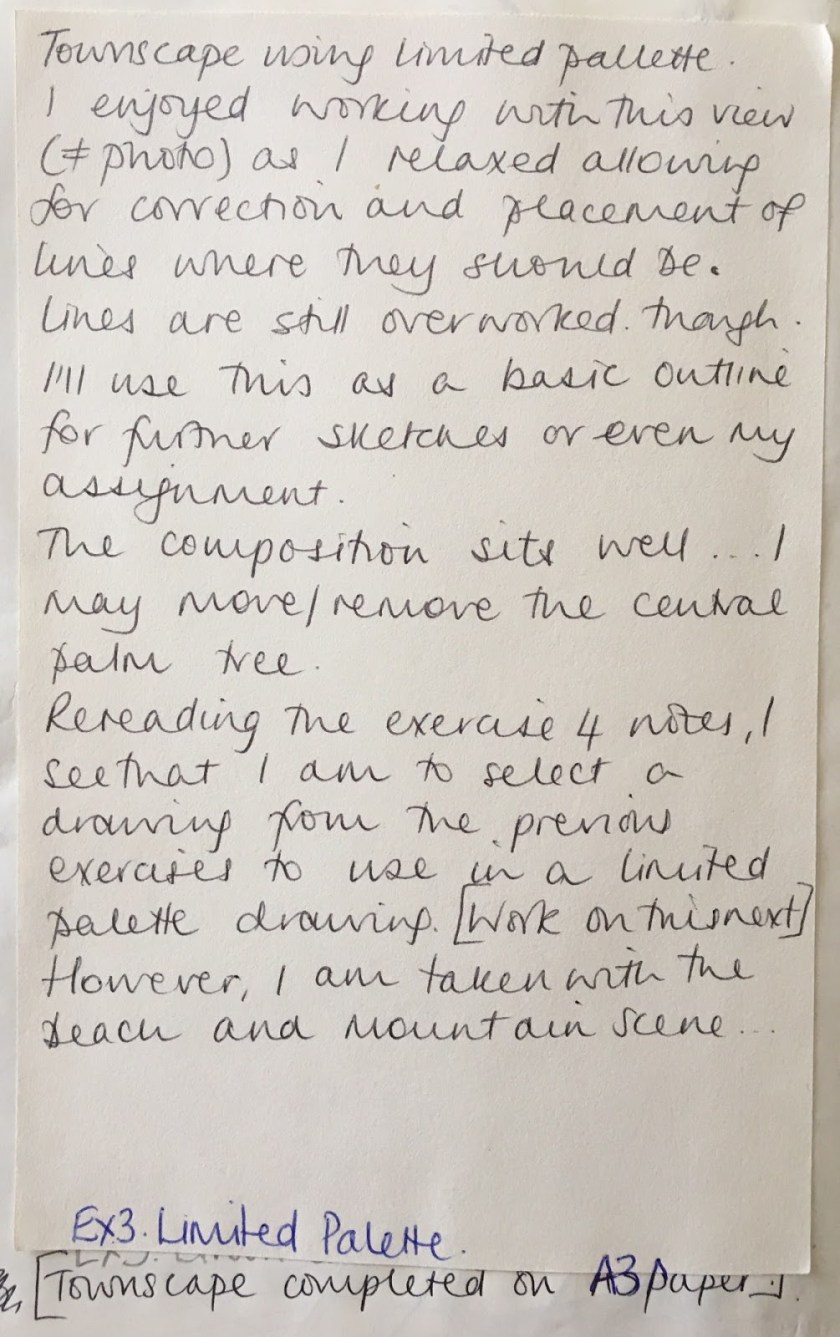 Townscape using limited pallette.
I enjoyed working with this view
(≠ photo) as I relaxed allowing
for correction and placement of
lines where they should be.
Lines are still overworked. though.
I'll use this as a basic outline
for further sketches or even my
assignment.
The composition sits well ... I
may move/remove the central
palm tree.
Rereading the exercise 4 notes, I
see that I am to select a
drawing from the previous
exercises to use in a limited
palette drawing. [Work on this next]
However, I am taken with the
beach and mountain scene...
Ex3. Limited Palette.
[Townscape completed on A3 paper].